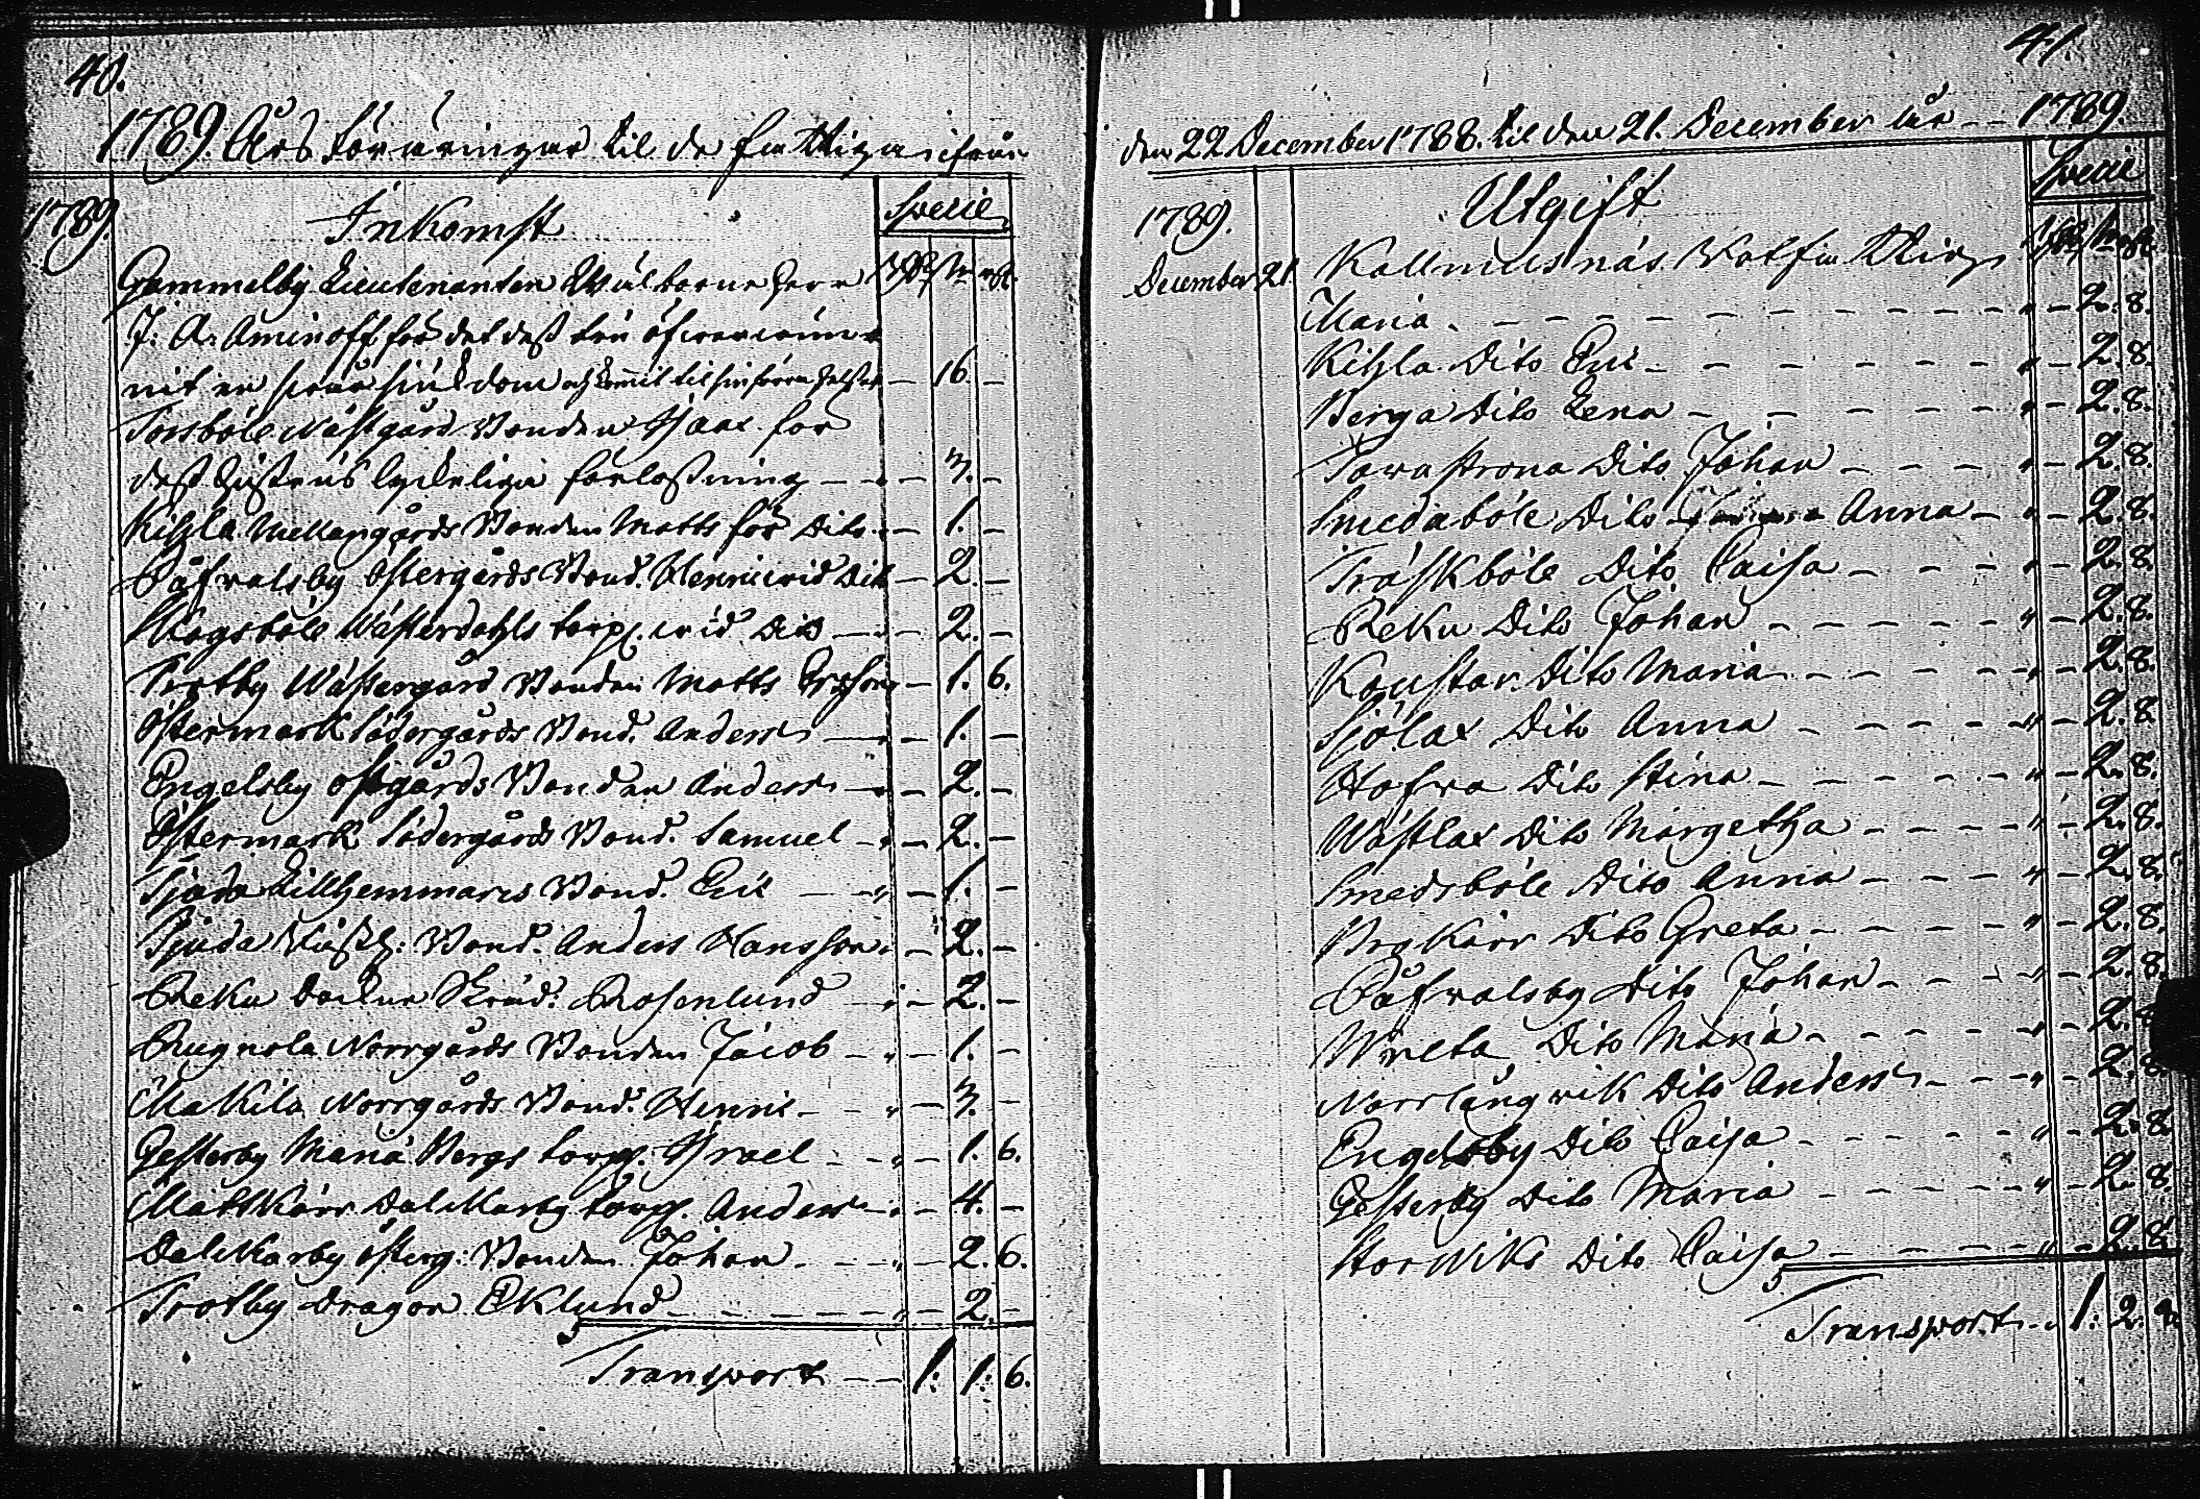 40.
1789. Års Föräringar til de fattiga ifrån
1789. Inkomst Specie
Gammelby Lieutenanten Wälborne Herr
J: A: Aminoff för det dess öfverwun-
nit en swår siukdom och kommit til sin förra helsa — 16. —
Torsböle Wästgård Bonden Isaac för
dess Hustrus lyckeliga förlossning — — 3. —
Kihla Mellangårds Bonden Matts för Dito — 1. —
Påfvalsby Östergårds Bond. Henric wid Dito — 2. —
Skogsböle Wästerdahls torp. wid Dito — — 2. —
Trotby Wästergård Bonden Matts Ersson — 1. 6.
Östermark Södergårds Bond. Anders — — 1. —
Engelsby Östgårds Bonden Anders — — 2. —
Östermark Södergårds Bond. Samuel — — 2. —
Tjuda Lillhemmans Bond. Eric — — 1. —
Tjuda Bond. Anders Hansson — 2. —
Reku Skräd. Rosenlund — — 2. —
Rugnola Norrgårds Bonden Jacob — — 1. —
Makila Norrgårds Bond. Henric — — 3. —
Gesterby Maria Bergs torp. Israel — — 1. 6.
Mattkärr Dalkarby torp. Anders — — 4. —
Dalkarby österg: Bonden Johan — — 2. 6.
Trotby Dragon Eklund — — 2. —
Transport — — 1: 1: 6.
41.
den 22 December 1788. til den 21. December år — — 1789.
1789. Utgift Specie
December 21. Kallmusnäs Rotfattig
Maria — — 2. 8.
Kihla Dito Eric — — 2. 8.
Berga Dito Lena — — 2. 8.
Tawastrona Dito Johan — — 2. 8.
Smedaböle Dito Anna — — 2. 8.
Träskböle Dito Caisa — — 2. 8.
Reku Dito Johan — — 2. 8.
Dito Maria — — 2. 8.
Sjölax Dito Anna — — 2. 8.
Hofva Dito Stina — — 2. 8.
Wästlax Dito Margetha — — 2. 8.
Smedsböle Dito Anna — — 2. 8.
Brokärr Dito Greta — — 2. 8.
Påfvalsby Dito Johan — — 2. 8.
Wreta Dito Maria — — 2. 8.
Norrlångvik Dito Anders — — 2. 8.
Engelsby Dito Caisa — — 2. 8.
Gesterby Dito Maria — — 2. 8.
Storwiks Dito Caisa — — 2. 8.
Transport — 1: 2: 8.